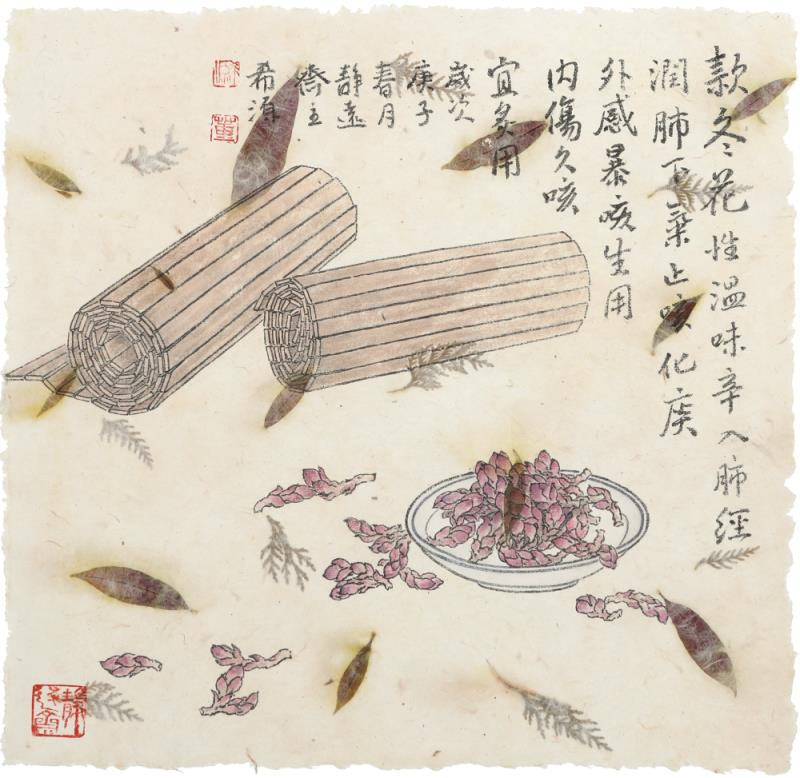 款冬花性溫味辛入肺經
潤肺下氣止咳化痰
外感暴咳生用
內傷久咳
宜炙用
歲次
庚子
春月
靜遠
齋主
希
靜遠齋